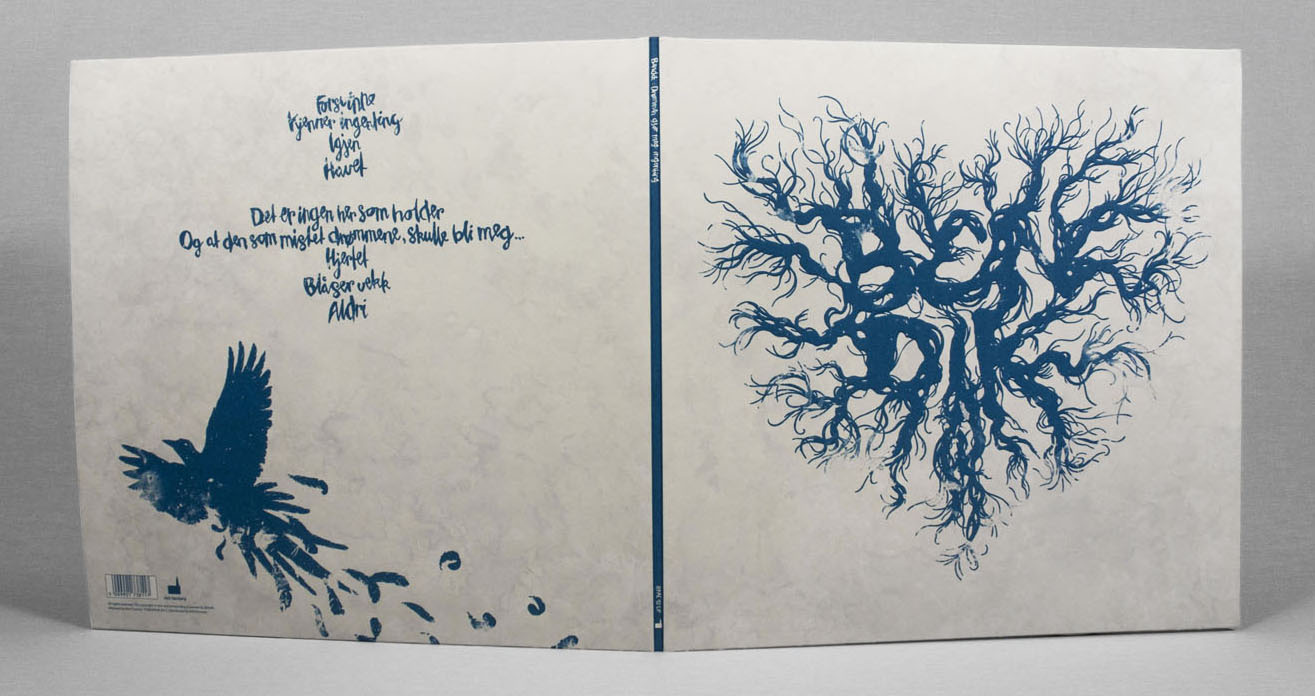 Forsvinne
Kjenner ingenting
Igjen
Havet
Det er ingen her som holder
Og at den som mistet drømmene, skulle bli meg...
Hjertet
Blåser vekk
Aldri
Bendik Drømmen gjør meg ingenting
BEN
DIK